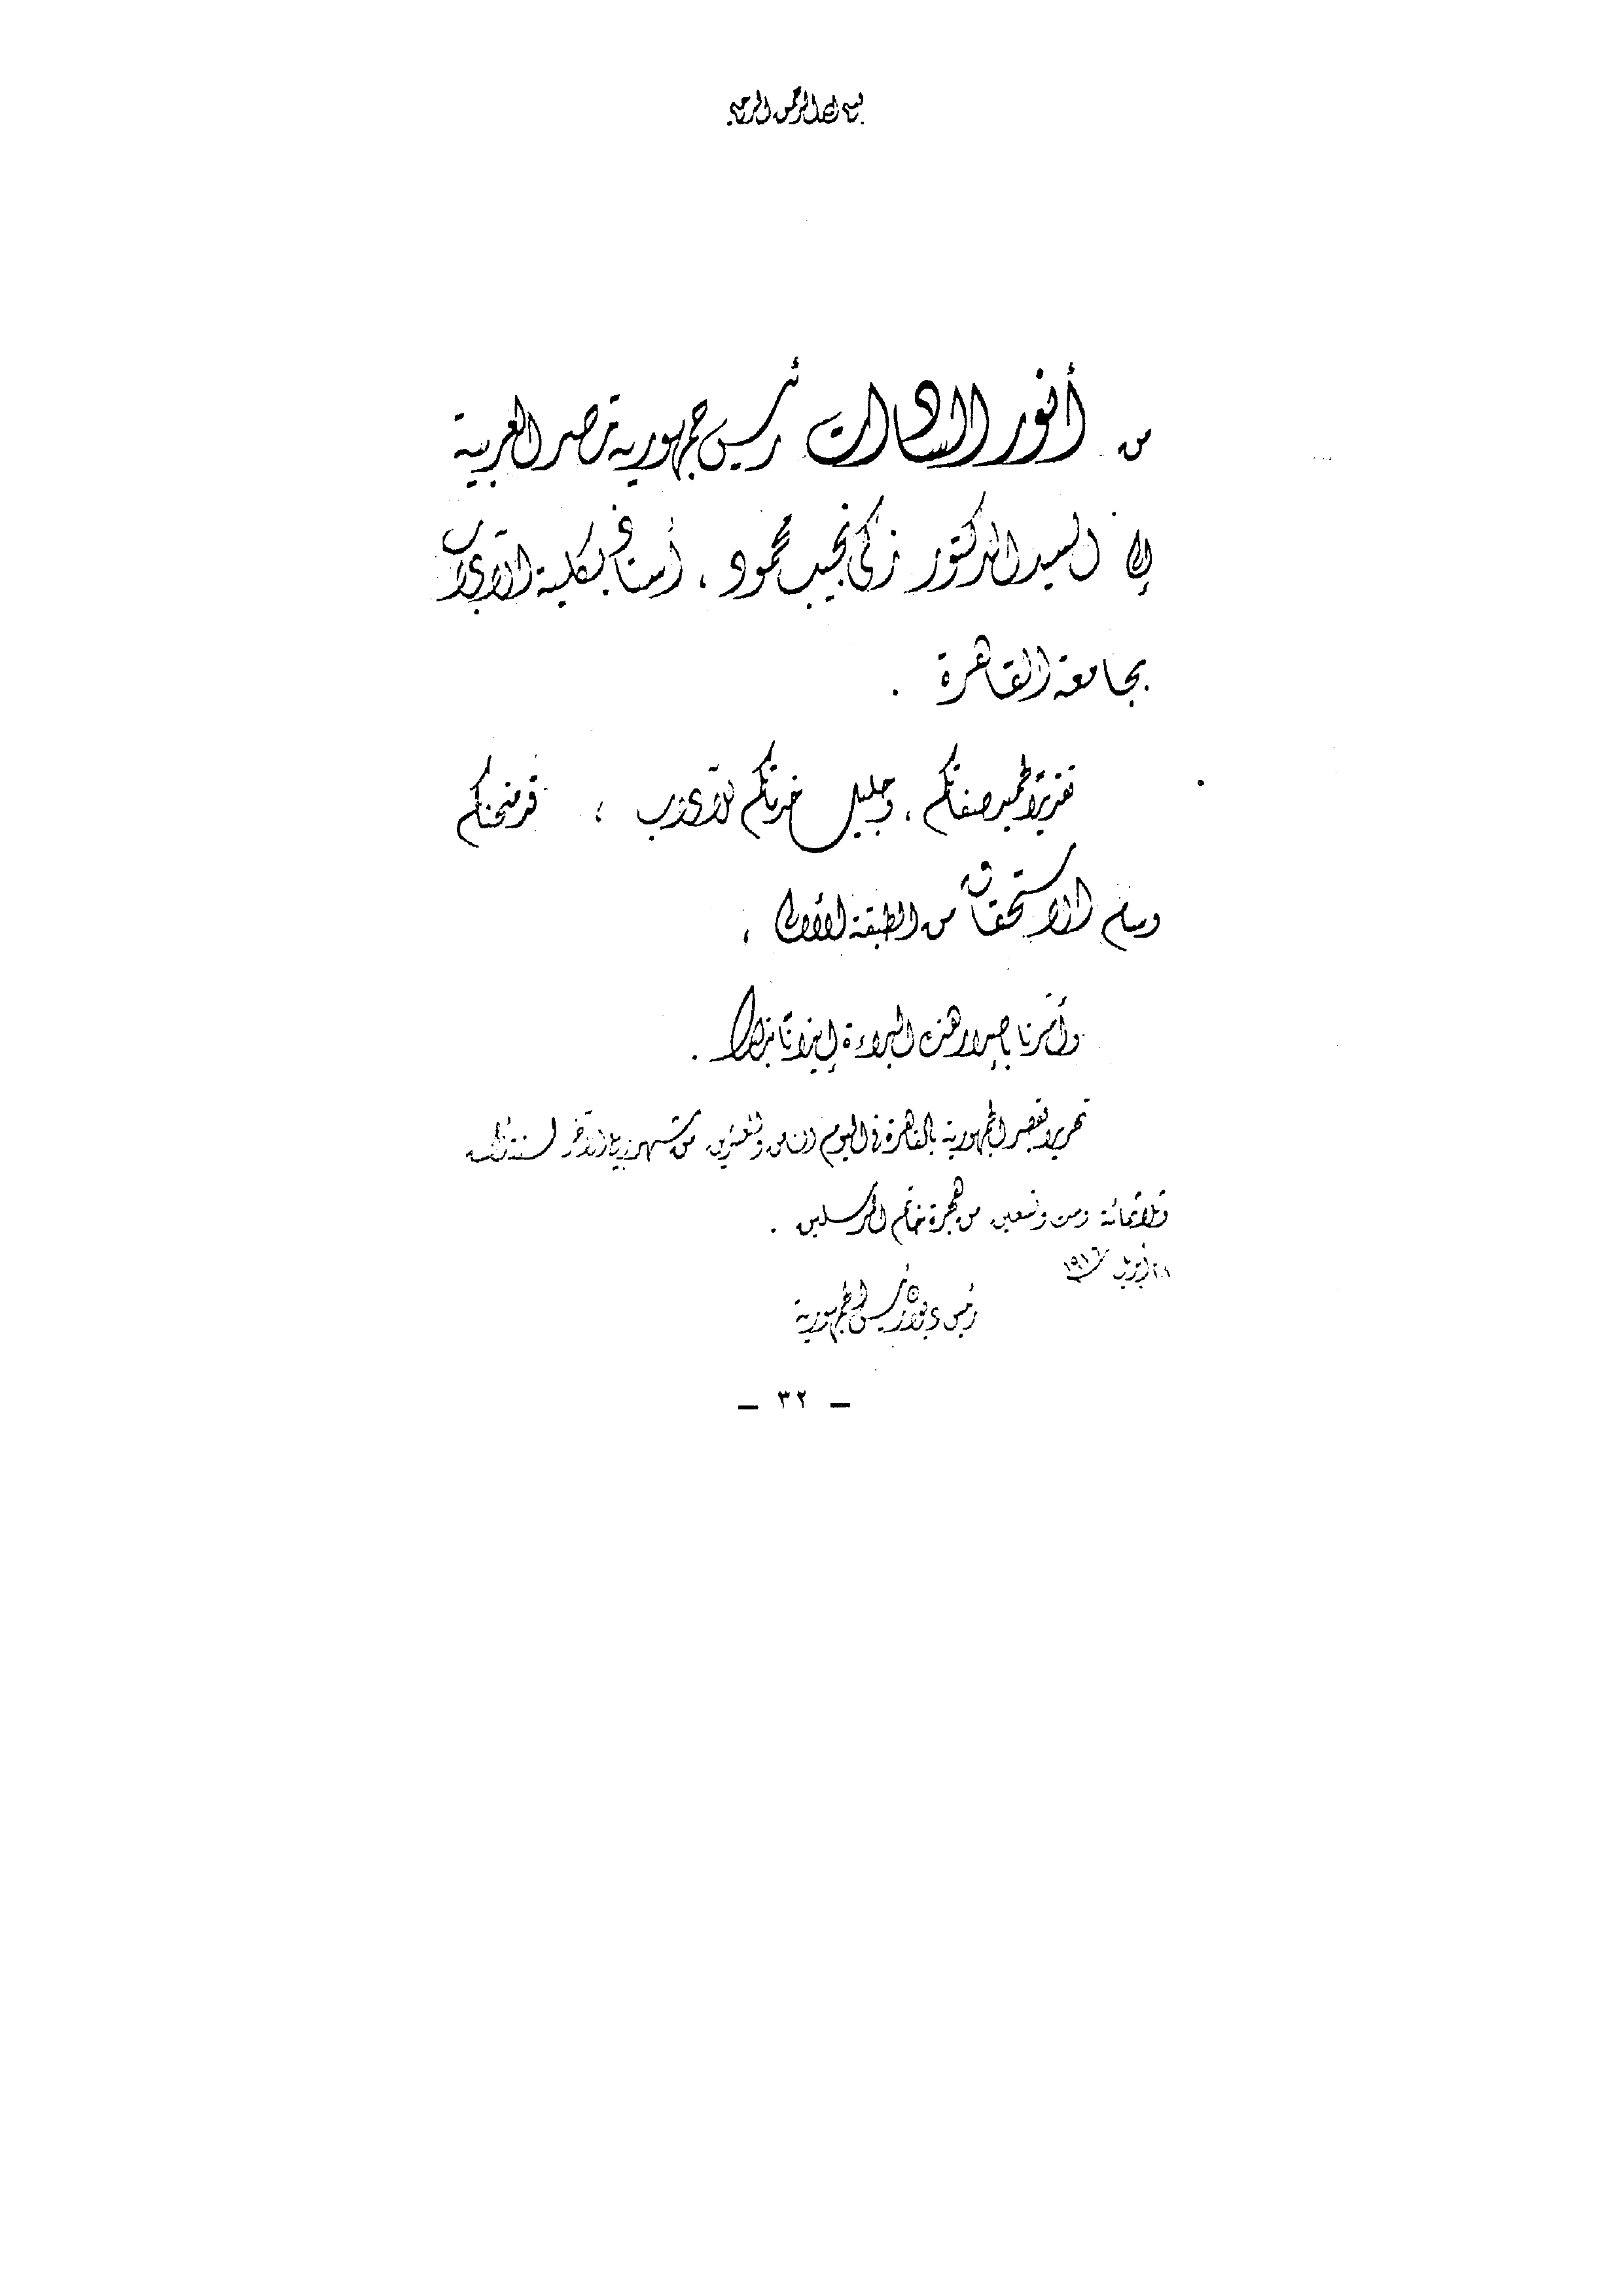 بسم الله الرحمن الرحيم
من أنور السادات رئيس جمهورية مصر العربية
إلى السيد الدكتور زكى نجيب محمود ، أستاذ بكلية الآداب
بجامعة القاهرة .
تقديرًا لحميد صفاتكم ، وجليل خدماتكم للآداب ؛ قد منحناكم
وسام الاستحقاق من الطبقة الأولى ،
وأمرنا بإصدار هذه البراءة إيذانًا بذلك .
تحريرا بقصر الجمهورية بالقاهرة فى اليوم الثامن والعشرين من شهر ربيع الآخر لسنة ألف
وثلاثمائة وست وتسعين من هجرة خاتم المرسلين .
٢٨ أبريل ١٩٧٦
رئيس ديوان رئيس الجمهورية
– ٣٢ –